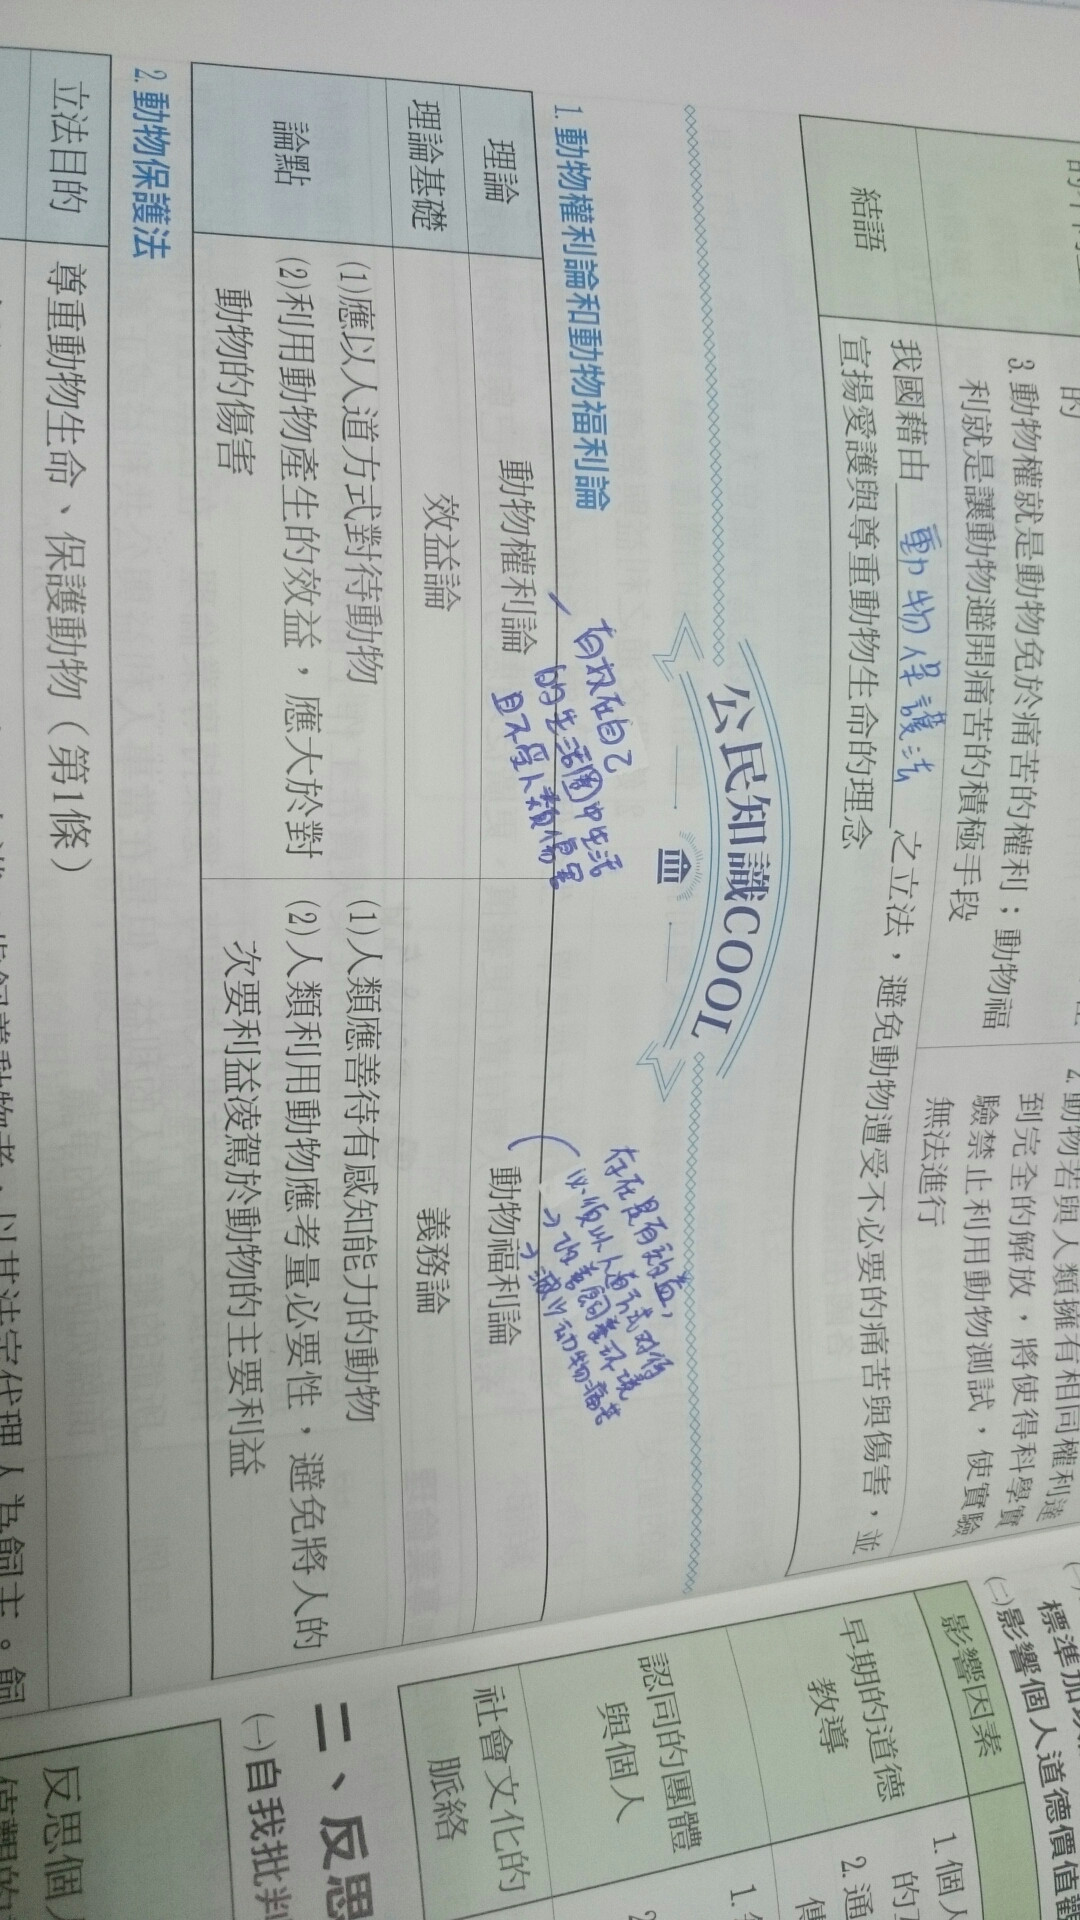 的
3. 動物權就是動物免於痛苦的權利；動物福
利就是讓動物避開痛苦的積極手段
2. 動物若與人類擁有相同權利達
到完全的解放，將使得科學實
驗禁止利用動物測試，使實驗
無法進行
結語
我國藉由 動物保護法 之立法，避免動物遭受不必要的痛苦與傷害，並
宣揚愛護與尊重動物生命的理念
公民知識COOL
1. 動物權利論和動物福利論
有权在自己
的生活圈中生活
且不受人類傷害
存在是有利益，
必須以人道方式對待
→改善飼養环境
→減少动物痛苦
理論
動物權利論
動物福利論
理論基礎
效益論
義務論
論點
(1)應以人道方式對待動物
(2)利用動物產生的效益，應大於對
動物的傷害
(1)人類應善待有感知能力的動物
(2)人類利用動物應考量必要性，避免將人的
次要利益凌駕於動物的主要利益
2. 動物保護法
立法目的
尊重動物生命、保護動物（第1條）
以其法定代理人為飼主。飼
(二)影響個人道德價值觀
影響因素
早期的道德
教導
1. 個人
2. 通
認同的團體
與個人
1.
2
社會文化的
脈絡
二、反思
(一)自我批判
反思個人